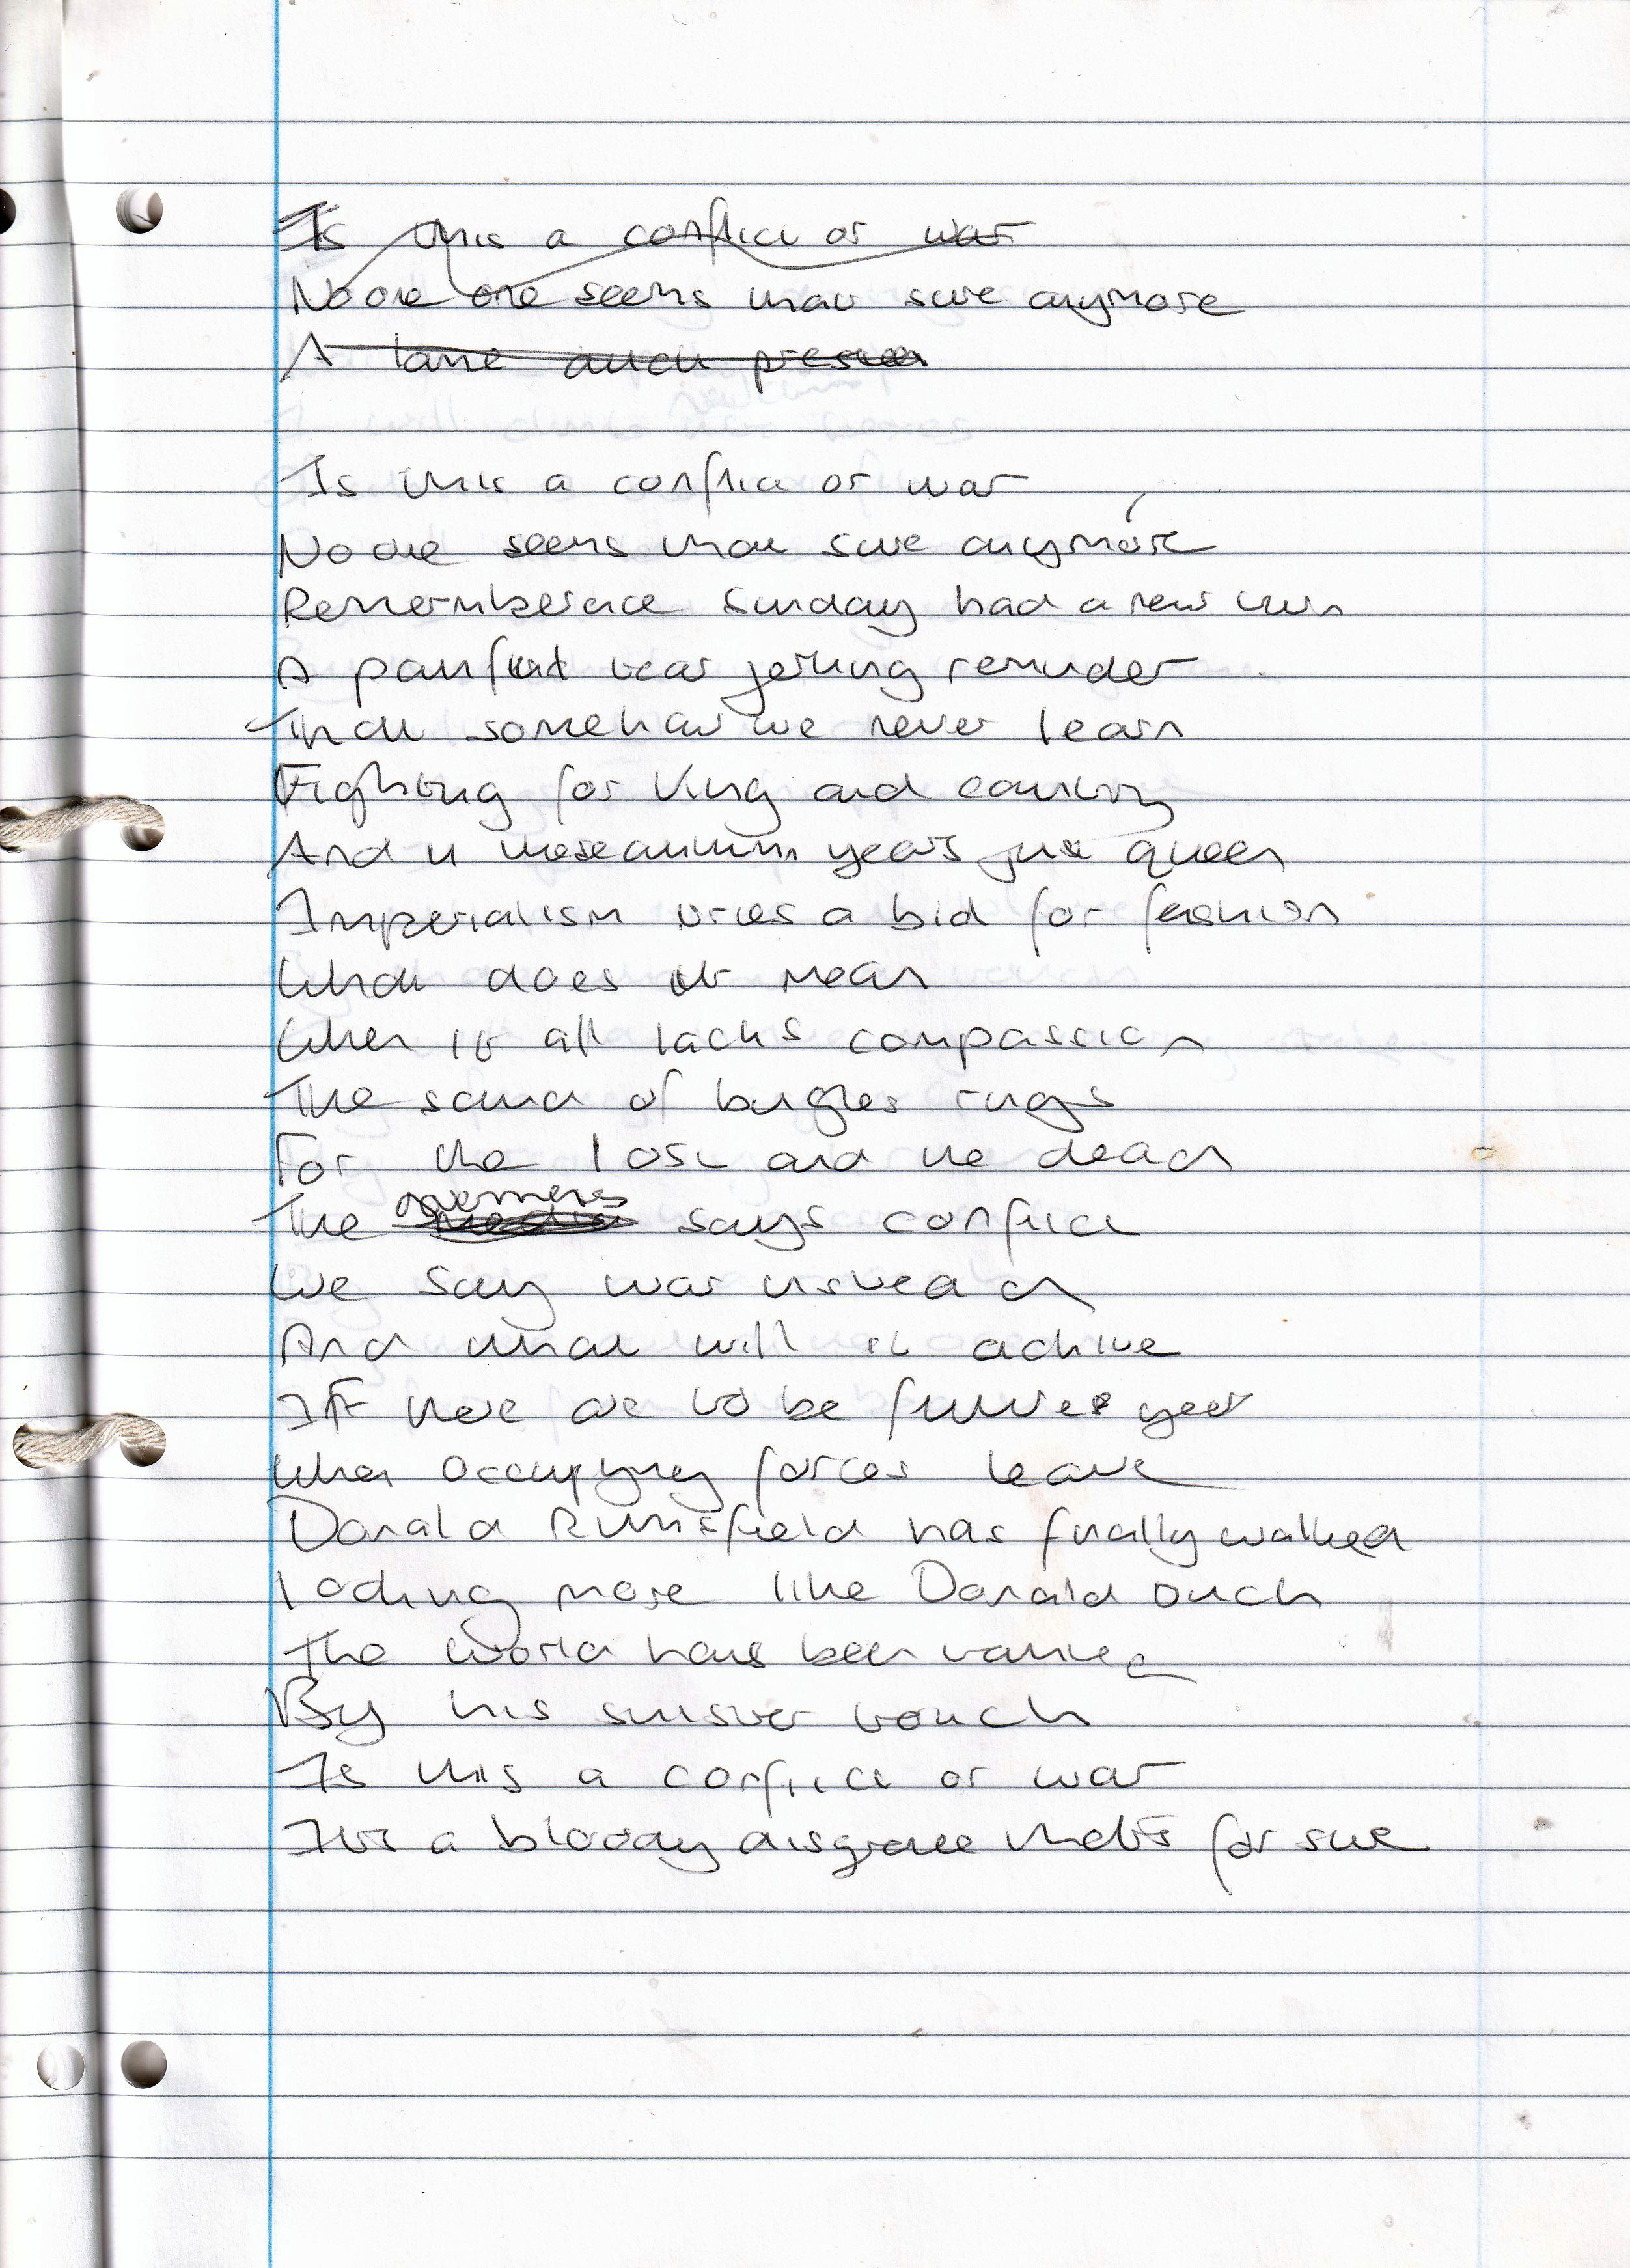 Is this a conflict or war
No one one seems that sure anymore
A lame duck

Is this a conflict or war
No one seems that sure anymore
Rememberence Sunday had a new turn
A painful tear jerking reminder
That somehow we never learn
Fighting for King and country
And in these autumn years just queen
Imperialism tries a bid for fashion
What does it mean
When it all lacks compassion
The sound of bugles rings
For the lost and the dead
The goverments
media says conflict
We say war instead
And what will it achive
If there are to be future year
When occupying forces leave
Donald Rumsfield has finally walked
looking more like Donald Duck
The world has been tainted
By his sinister touch
Is this a conflict or war
Its a bloody disgrace that's for sure